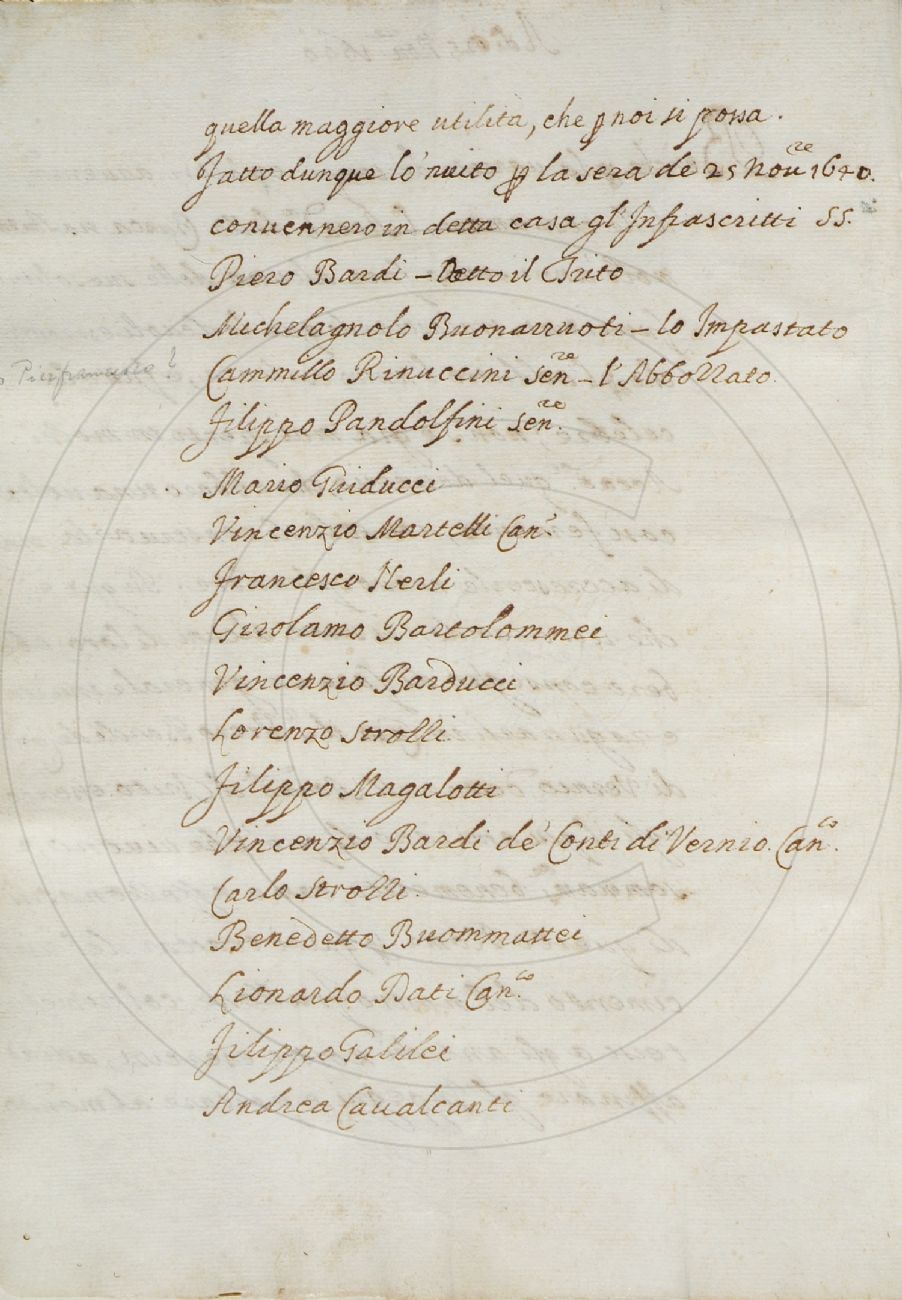 quella maggiore utilità, che ꝑ noi si possa.
Fatto dunque lo 'nuito ꝑ la sera de 25 Nou.re 1640.
conuennero in detta casa gl'Infrascritti SS.
Piero Bardi - Detto il Trito
Michelagnolo Buonarruoti - lo Impastato
Cammillo Rinuccini Sen.re - l'Abbozzato
Filippo Pandolfini Sen.re
Mario Guiducci
Vincenzio Martelli Can.co
Francesco Nerli
Girolamo Bartolommei
Vincenzio Barducci
Lorenzo Strozzi
Filippo Magalotti
Vincenzio Bardi de' Conti di Vernio. Can.co
Carlo Strozzi
Benedetto Buommattei
Lionardo Dati Can.co
Filippo Galilei
Andrea Caualcanti